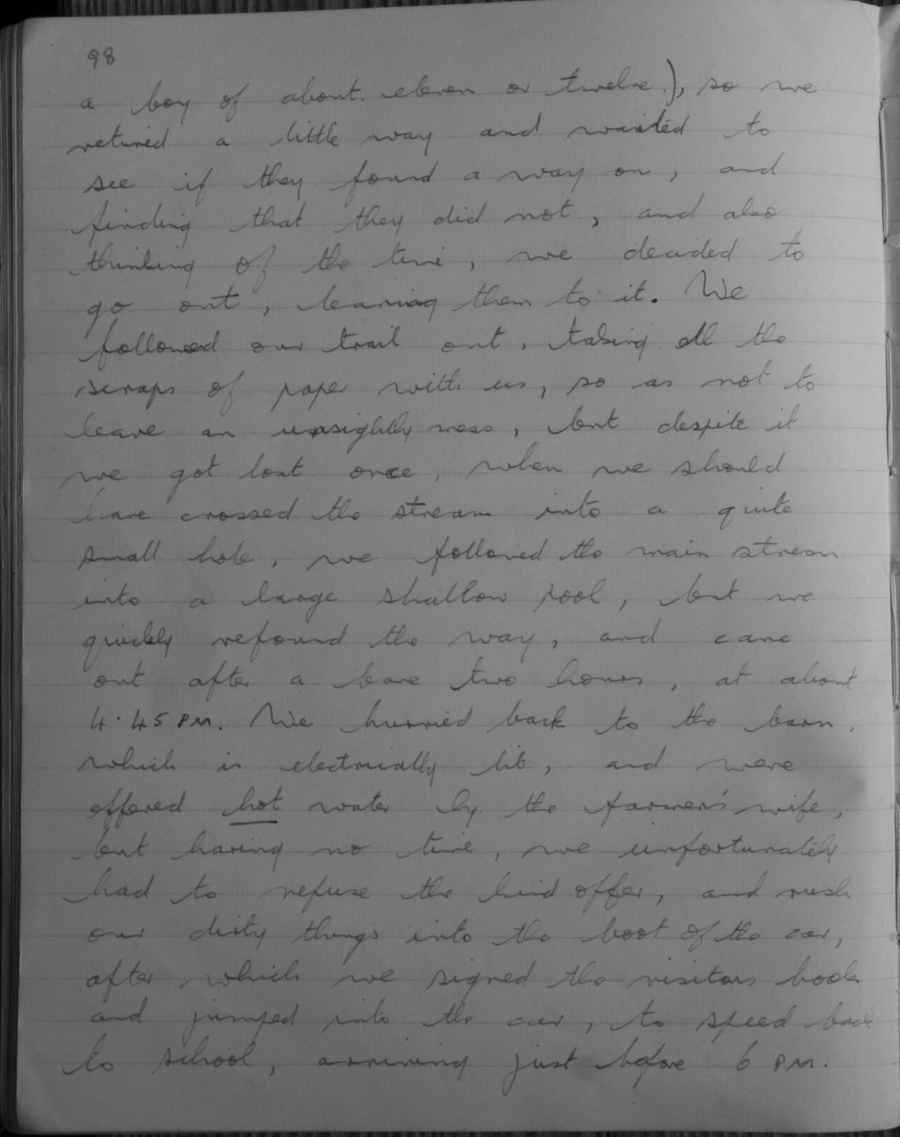 98
a boy of about eleven or twelve.), so we
retired a little way and waited to
see if they found a way on, and
finding that they did not, and also
thinking of the time, we decided to
go out, leaving them to it. We
followed our trail out, taking all the
scraps of paper with us, so as not to
leave an unsightly mess, but despite it
we got lost once, when we should
have crossed the stream into a quite
small hole, we followed the main stream
into a large shallow pool, but we
quickly refound the way, and came
out after a bare two hours, at about
4.45 PM. We hurried back to the barn,
which is electrically lit, and were
offered hot water by the farmer's wife,
but having no time, we unfortunately
had to refuse the kind offer, and rush
our dirty things into the boot of the car,
after which we signed the visitors book
and jumped into the car, to speed back
to school, arriving just before 6 PM.